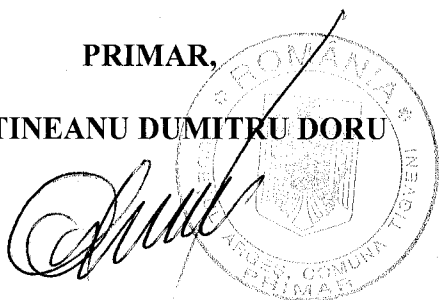 PRIMAR,
TINEANU DUMITRU DORU
ROMÂNIA
ARGEȘ, COMUNA TIGVENI
PRIMAR